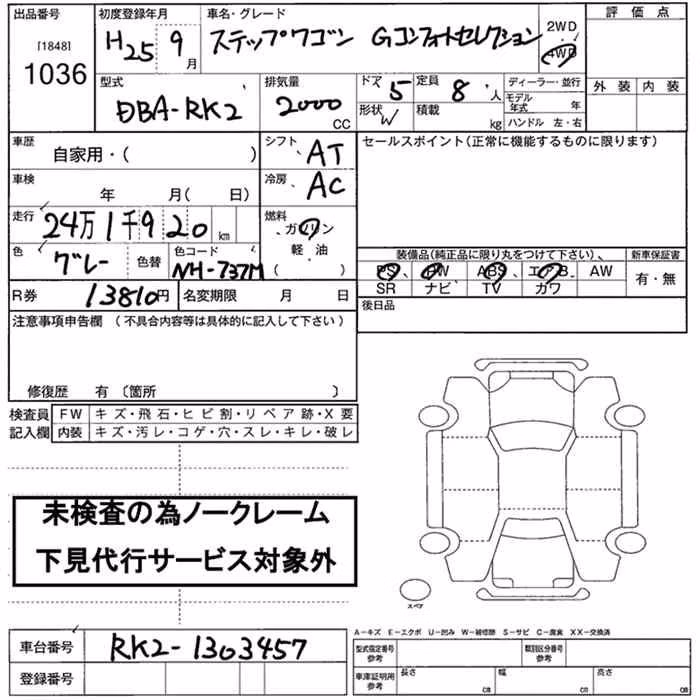 出品番号 初度登録年月 車名・グレード 2WD 評価点
[1848] H25 9月 ステップワゴン Gコンフォートセレクション 4WD
1036 型式 排気量 ドア 5 定員 8人 ディーラー・並行 外装 内装
DBA-RK2 2000 CC 形状 W 積載 kg モデル年式 年
ハンドル 左・右
車歴 自家用・( ) シフト AT セールスポイント(正常に機能するものに限ります)
車検 年 月( 日) 冷房 AC
走行 24万1千920km 燃料 ガソリン
軽・油
( )
色 グレー 色替 色コード NH-737M 装備品(純正品に限り丸をつけて下さい)、 新車保証書
PS PW ABS エアB AW 有・無
SR ナビ TV カワ
R券 13810円 名変期限 月 日 後日品
注意事項申告欄 (不具合内容等は具体的に記入して下さい)
修復歴 有 〔箇所 〕
検査員 FW キズ・飛石・ヒビ割・リペア跡・X要
記入欄 内装 キズ・汚レ・コゲ・穴・スレ・キレ・破レ
未検査の為ノークレーム
下見代行サービス対象外
スペア
A-キズ E-エクボ U-凹み W-補修跡 S-サビ C-腐食 XX-交換済
車台番号 RK2-1303457 型式指定番号 参考 類別区分番号 参考
登録番号 車庫証明用 参考 長さ cm 幅 cm 高さ cm